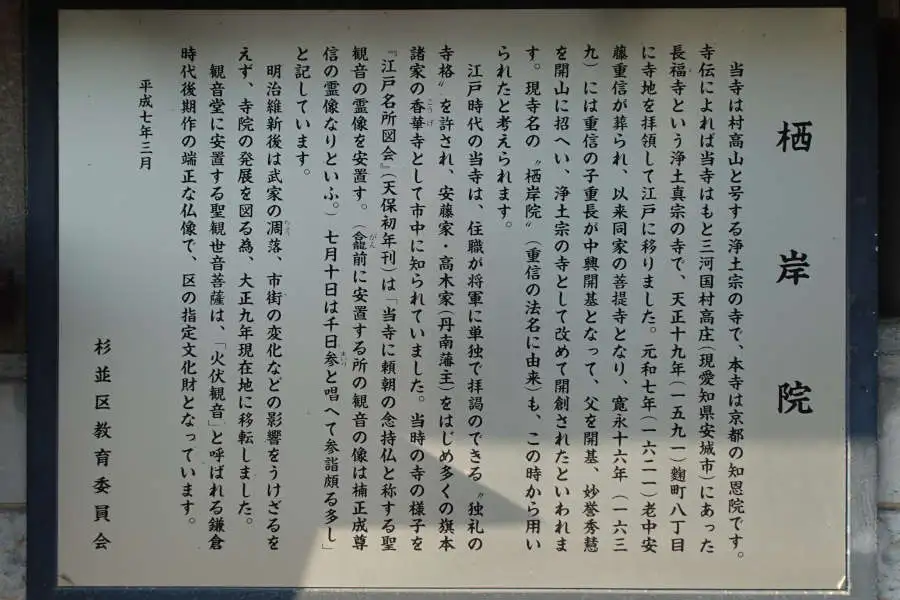 栖岸院
当寺は村高山と号する浄土宗の寺で、本寺は京都の知恩院です。
寺伝によれば当寺はもと三河国村高庄（現愛知県安城市）にあった
長福寺という浄土真宗の寺で、天正十九年（一五九一）麴町八丁目
に寺地を拝領して江戸に移りました。元和七年（一六二一）老中安
藤重信が葬られ、以来同家の菩提寺となり、寛永十六年（一六三
九）には重信の子重長が中興開基となって、父を開基、妙誉秀慧
を開山に招へい、浄土宗の寺として改めて開創されたといわれま
す。現寺名の〝栖岸院〟（重信の法名に由来）も、この時から用い
られたと考えられます。
江戸時代の当寺は、住職が将軍に単独で拝謁のできる〝独礼の
寺格〟を許され、安藤家・高木家（丹南藩主）をはじめ多くの旗本
諸家の香華寺として市中に知られていました。当時の寺の様子を
『江戸名所図会』（天保初年刊）は「当寺に頼朝の念持仏と称する聖
観音の霊像を安置す。（龕前に安置する所の観音の像は楠正成尊
信の霊像なりといふ。）七月十日は千日参と唱へて参詣頗る多し」
と記しています。
明治維新後は武家の凋落、市街の変化などの影響をうけざるを
えず、寺院の発展を図る為、大正九年現在地に移転しました。
観音堂に安置する聖観世音菩薩は、「火伏観音」と呼ばれる鎌倉
時代後期作の端正な仏像で、区の指定文化財となっています。
平成七年三月
杉並区教育委員会